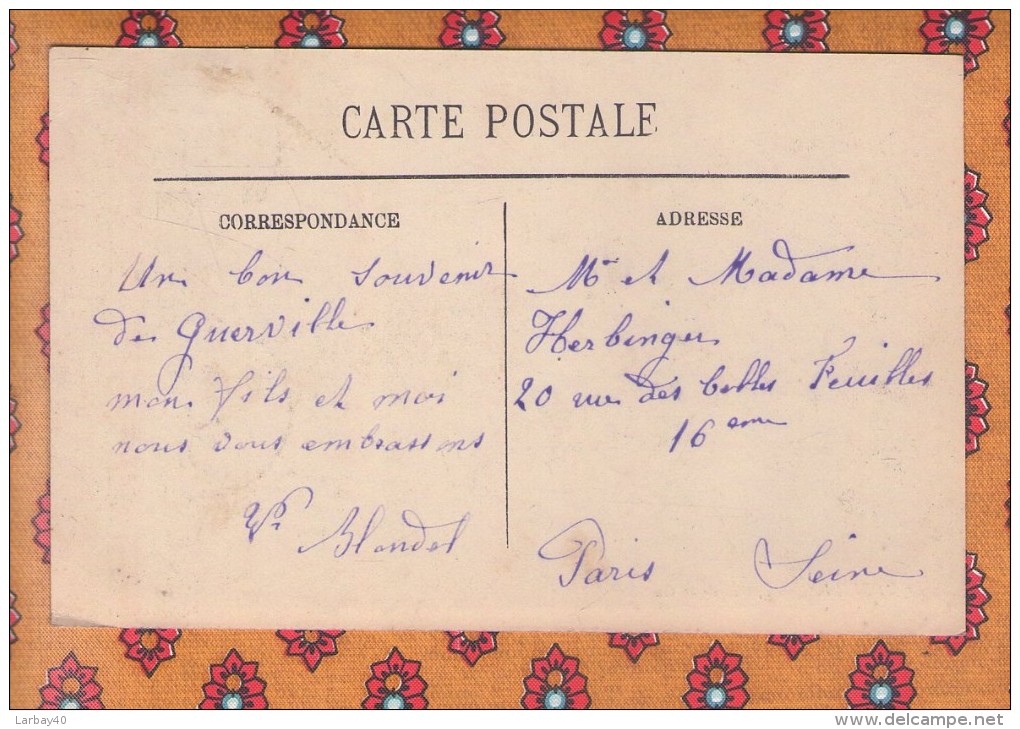 CARTE POSTALE
CORRESPONDANCE
Un bon souvenir
de Guerville
mon fils et moi
nous vous embrassons
Vve Blondel
ADRESSE
Mr et Madame
Herbinger
20 rue des belles Feuilles
16 eme
Paris Seine
Larbay40
www.delcampe.net